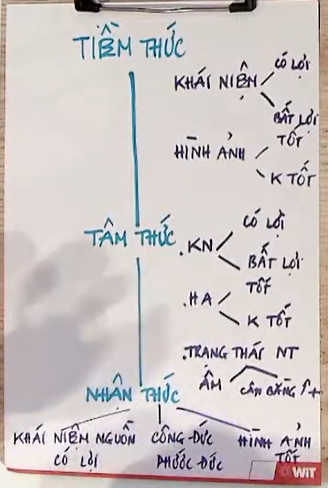 TIỀM THỨC
KHÁI NIỆM
CÓ LỢI
BẤT LỢI
HÌNH ẢNH
TỐT
K TỐT
TÂM THỨC
.KN
CÓ LỢI
BẤT LỢI
.HA
TỐT
K TỐT
.TRẠNG THÁI NT
ÂM
CÂN BẰNG
NHẬN THỨC
KHÁI NIỆM NGUỒN
CÓ LỢI
CÔNG ĐỨC
PHƯỚC ĐỨC
HÌNH ẢNH
TỐT
WIT